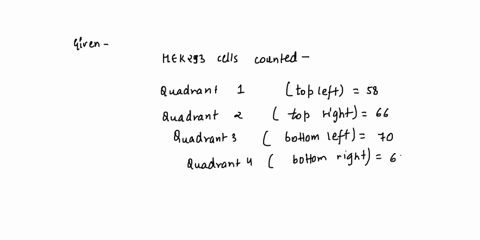 Given -
HEK293 cells counted -
Quadrant 1 (top left) = 58
Quadrant 2 ( top right) = 66
Quadrant 3 ( bottom left) = 70
Quadrant 4 ( bottom right) = 6